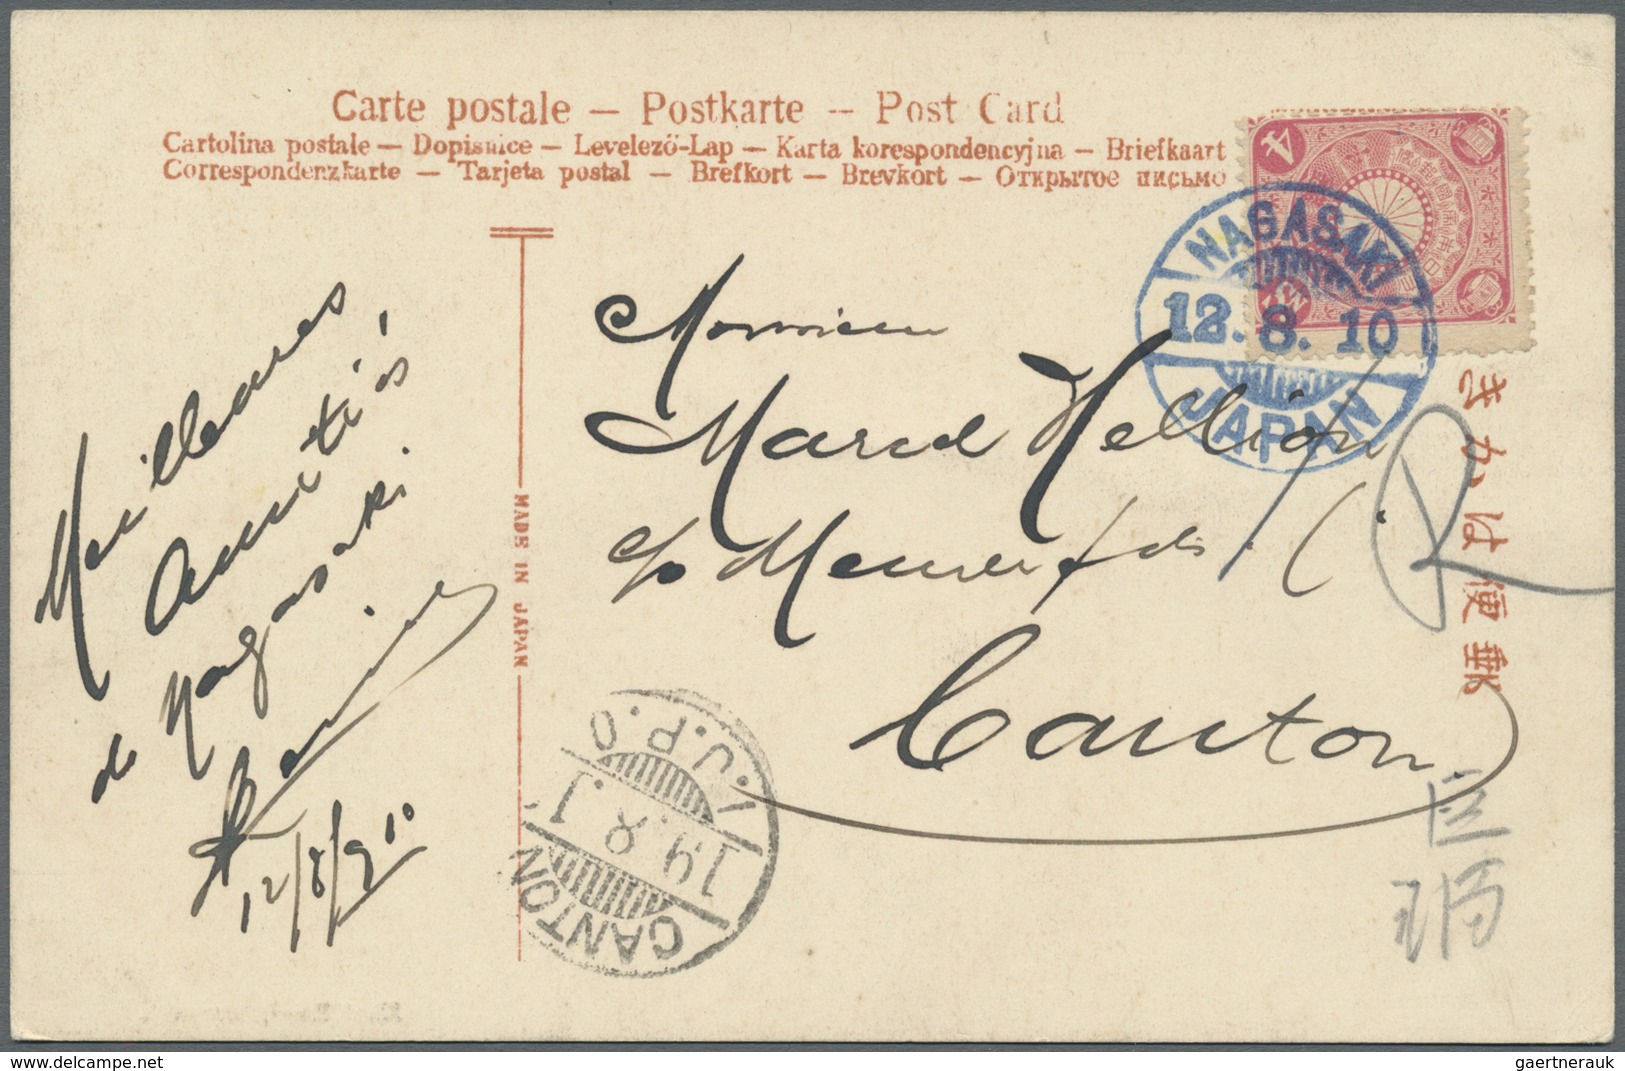 Carte postale — Postkarte — Post Card
Cartolina postale — Dopisnice — Levelező-Lap — Karta korespondencyjna — Briefkaart
Correspondenzkarte — Tarjeta postal — Brefkort — Brevkort — Открытое письмо
NAGASAKI
12.8.10
JAPAN
4
SN
郵便はかき
MADE IN JAPAN
Meilleures
amitiés
de Nagasaki
12/8/910
Monsieur
Marcel Hellion
c/o
Canton
R
I.J.P.O.
19.8.
CANTON
gaertnerauk